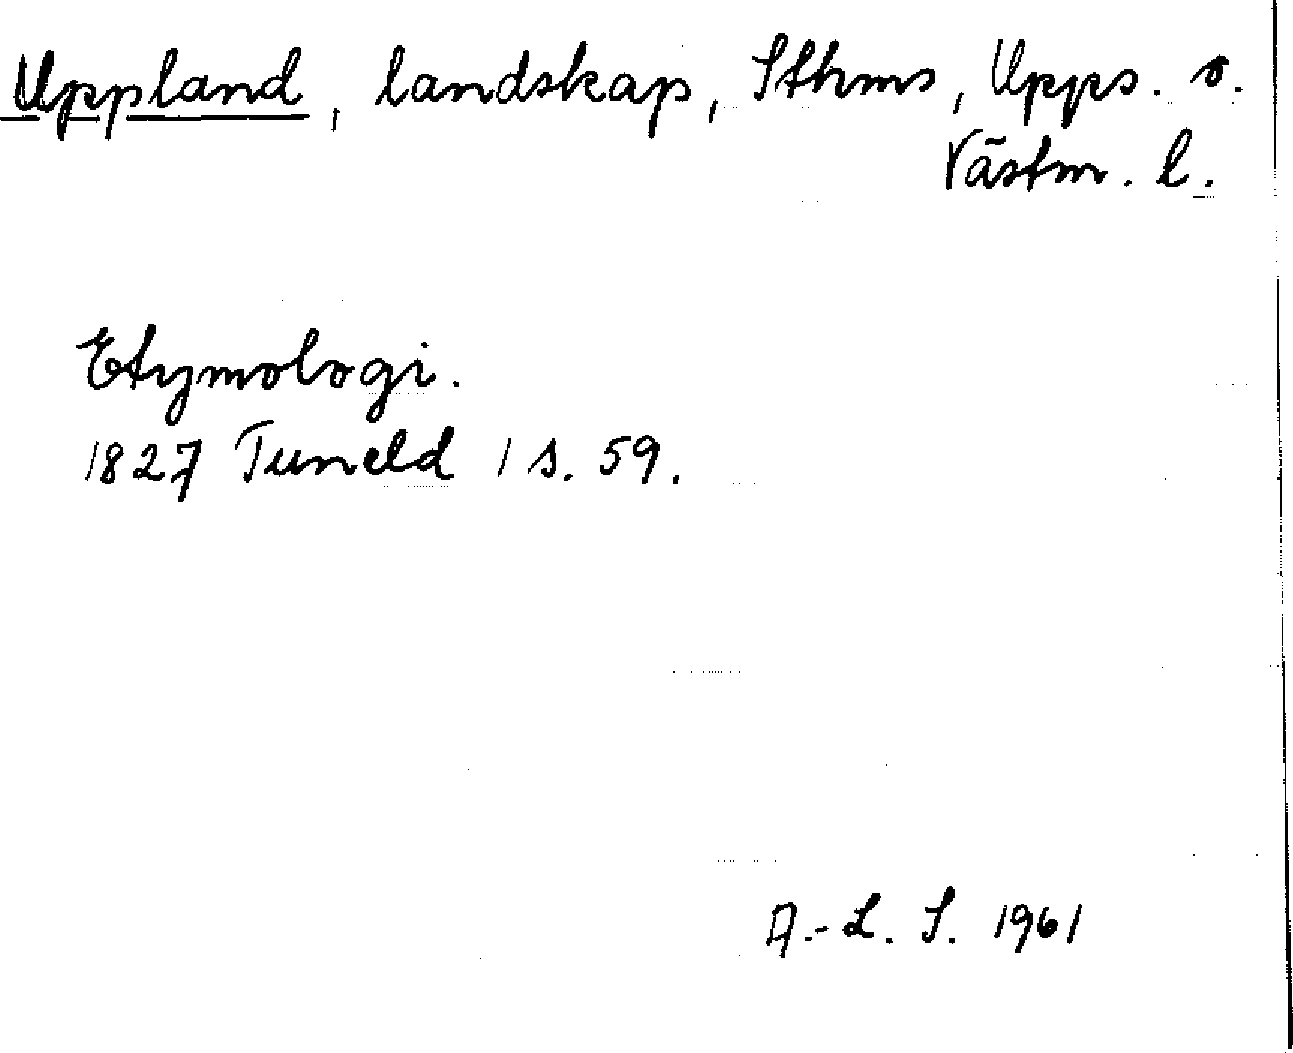 Uppland, landskap, Sthms, Upps. o.
Västm. l.
Etymologi.
1827 Tuneld 1 s. 59.
A.-L. S. 1961